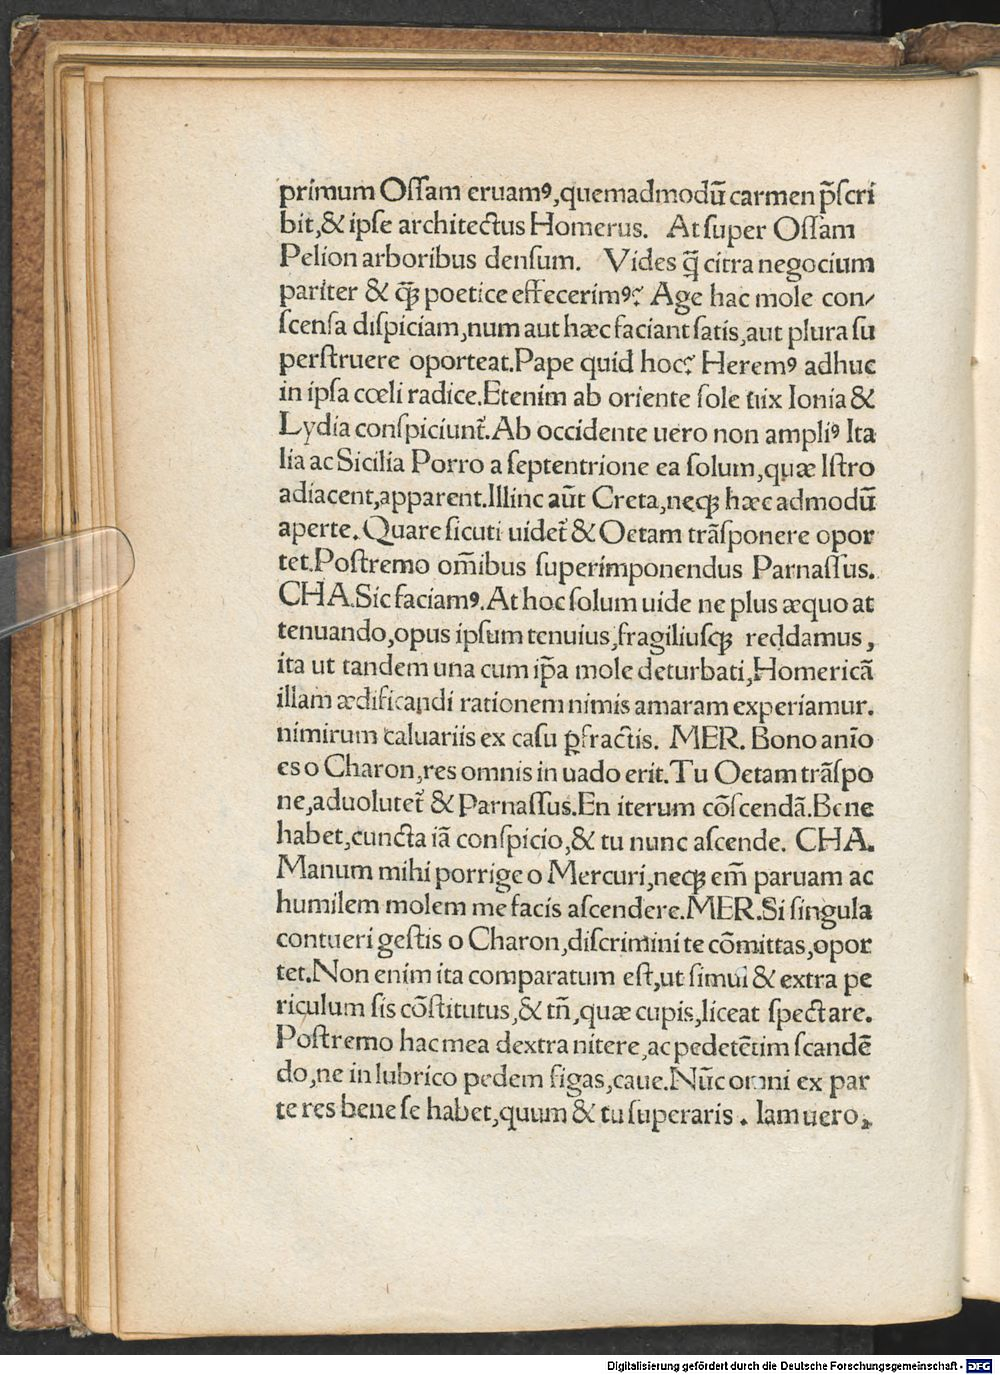 primum Oſſam eruamꝰ,quemadmodū carmen p̄ſcri
bit,& ipſe architectus Homerus. At ſuper Oſſam
Pelion arboribus denſum. Vides q̄ citra negocium
pariter & q̄ꝫ poetice effecerimꝰ? Age hac mole con⸗
ſcenſa diſpiciam,num aut hæc faciant ſatis,aut plura ſu
perſtruere oporteat.Pape quid hoc? Heremꝰ adhuc
in ipſa cœli radice.Etenim ab oriente ſole uix Ionia &
Lydia conſpiciunt᷑.Ab occidente uero non ampliꝰ Ita
lia ac Sicilia Porro a ſeptentrione ea ſolum,quæ Iſtro
adiacent,apparent.Illinc aūt Creta,neqꝫ hæc admodū
aperte.Quare ſicuti uidet᷑ & Oetam trāſponere opor
tet.Poſtremo om̄ibus ſuperimponendus Parnaſſus.
CHA.Sic faciamꝰ.At hoc ſolum uide ne plus æquo at
tenuando,opus ipſum tenuius,fragiliuſqꝫ reddamus,
ita ut tandem una cum ip̄a mole deturbati,Homericā
illam ædificandi rationem nimis amaram experiamur.
nimirum caluariis ex caſu ꝑfractis. MER. Bono anīo
es o Charon,res omnis in uado erit.Tu Oetam trāſpo
ne,aduolutet᷑ & Parnaſſus.En iterum cōſcendā.Bene
habet,cuncta iā conſpicio,& tu nunc aſcende. CHA.
Manum mihi porrige o Mercuri,neqꝫ em̄ paruam ac
humilem molem me facis aſcendere.MER.Si ſingula
contueri geſtis o Charon,diſcrimini te cōmittas,opor
tet.Non enim ita comparatum eſt,ut ſimul & extra pe
riculum ſis cōſtitutus,& tn̄,quæ cupis,liceat ſpectare.
Poſtremo hac mea dextra nitere,ac pedetētim ſcandē
do,ne in lubrico pedem figas,caue.Nūc omni ex par
te res bene ſe habet,quum & tu ſuperaris. Iam uero,
Digitalisierung gefördert durch die Deutsche Forschungsgemeinschaft - DFG